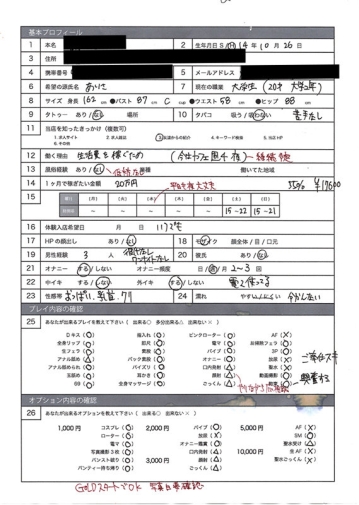 基本プロフィール
1 本名
2 生年月日 S・H 14年 10月 26日
3 住所
4 携帯番号
5 メールアドレス
6 希望の源氏名 ありさ
7 現在の職業 大学生 (20才 大学2年)
8 サイズ 身長 162 cm ●バスト 87 cm C cup ●ウエスト 58 cm ●ヒップ 88 cm
9 タトゥー あり / なし 場所
10 タバコ 吸う / 吸わない 苦手なし
11 当店を知ったきっかけ (複数可)
1. 求人サイト 2. 求人雑誌 3. 友達からの紹介 4. キーワード検索 5. 当店HP
6. その他
12 働く理由 生活費を稼ぐため
13 風俗経験 あり / なし 業種 働いてた地域
14 1ヶ月で稼ぎたい金額 20万円
15 曜日 [月] [火] [水] [木] [金] [土] [日]
~ ~ ~ ~ ~ 15~22 15~21
平日も夜大丈夫
16 体験入店希望日 月 日 いつでも
17 HPの顔出し あり / なし
18 モザイク 顔全体 / 目 / 口元
19 男性経験 3人
20 彼氏 あり / なし
21 オナニー する / しない オナニー頻度 日 / 週 / 月 2~3 回
22 中イキ する / しない 外イキ する / しない
23 性感帯 おっぱい、乳首、クリ
24 濡れ やすい / にくい
プレイ内容の確認
25 あなたが出来るプレイを教えて下さい ( 出来る○ 多分出来る△ 出来ない× )
Dキス (○) 指入れ (○) ピンクローター (○) AF (×)
全身リップ (○) 肌見 (○) 電マ (○) お掃除フェラ (○)
生フェラ (○) 素股 (○) バイブ (○) 3P (○)
アナル舐め パック (○) オナニー (○) 放尿 (×)
アナル舐められ (○) パイズリ (○) 口内発射 聖水 (×)
玉舐め (○) 耳かき (○) 顔射 (△) 動画撮影 (○)
69 (○) 全身マッサージ (○) ごっくん (△)
オプション内容の確認
26 あなたが出来るオプションを教えて下さい ( 出来る○ 出来ない× )
1,000円 コスプレ (○) 2,000円 バイブ (○) 5,000円 AF (×)
ローター (○) 放尿 (×) SM (○)
電マ (○) オナニー鑑賞 (○) 聖水受け (△)
写真撮影3枚 (○) 口内発射 (△) 10,000円 生AF (×)
パンスト破り (○) 3,000円 顔射 (△) 聖水ごっくん (×)
パンティー持ち帰り (○) ごっくん (△)
GOLDスタートでOK